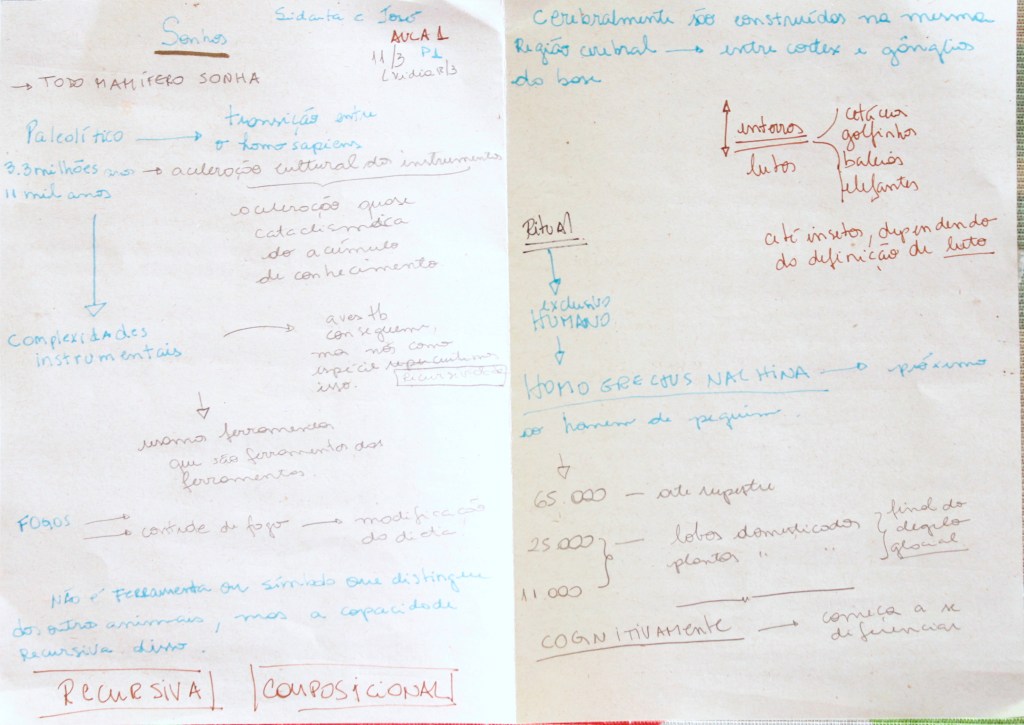 Sidarta e José
Sonhos
AULA 1
11/3 P1
8/3
→ TODO MAMÍFERO SONHA
Paleolítico → transição entre
o homo sapiens
3.3 milhões → aceleração cultural do instrumento
11 mil anos
aceleração quase
cataclismática
do acúmulo
de conhecimento
Complexidades
instrumentais
aves tb
conseguem,
mas nós como
espécie
isso. recursividade
usamos ferramentas
que são ferramentas das
ferramentas.
FOGOS → controle de fogo → modificação
da dieta
NÃO É Ferramenta ou símbolo que distingue
dos outros animais, mas a capacidade
Recursiva disso.
RECURSIVA COMPOSICIONAL
Cerebralmente são construídos na mesma
Região cerebral → entre cortex e gânglios
da base
enterros
lutos
cetáceos
golfinhos
baleias
elefantes
até insetos, dependendo
da definição de luto
Ritual
exclusivo
HUMANO
HOMO ERECTUS NALHINA → próximo
ao homem de pequim.
65.000 — arte rupestre
25.000 — lobos domesticados
plantas " "
11.000
final do
degelo
glacial
COGNITIVAMENTE → começa a se
diferenciar